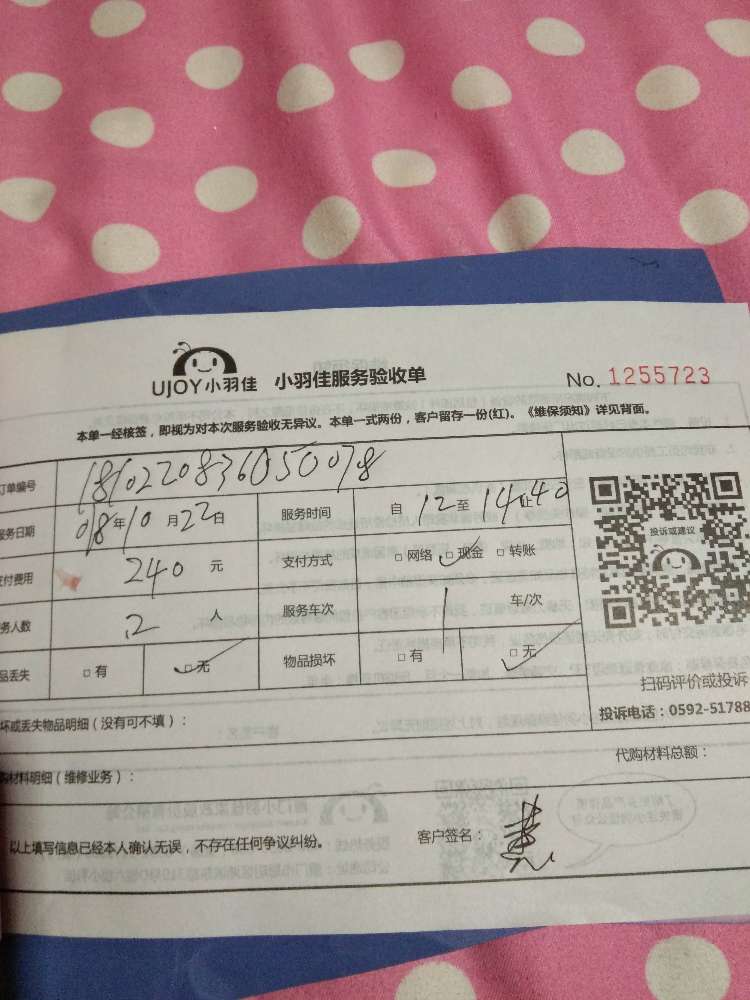 UJOY小羽佳 小羽佳服务验收单 No. 1255723
本单一经核签，即视为对本次服务验收无异议。本单一式两份，客户留存一份(红)。《维保须知》详见背面。
订单编号 1810220836050078
服务日期 018年10月22日 服务时间 自 12 至 14:40 止
支付费用 240 元 支付方式 □ 网络 □ 现金 □ 转账
务人数 2 人 服务车次 1 车/次
品丢失 □ 有 □ 无 物品损坏 □ 有 □ 无
投诉或建议
扫码评价或投诉
投诉电话：0592-51788
坏或丢失物品明细（没有可不填）：
代购材料总额：
购材料明细（维修业务）：
以上填写信息已经本人确认无误，不存在任何争议纠纷。 客户签名：